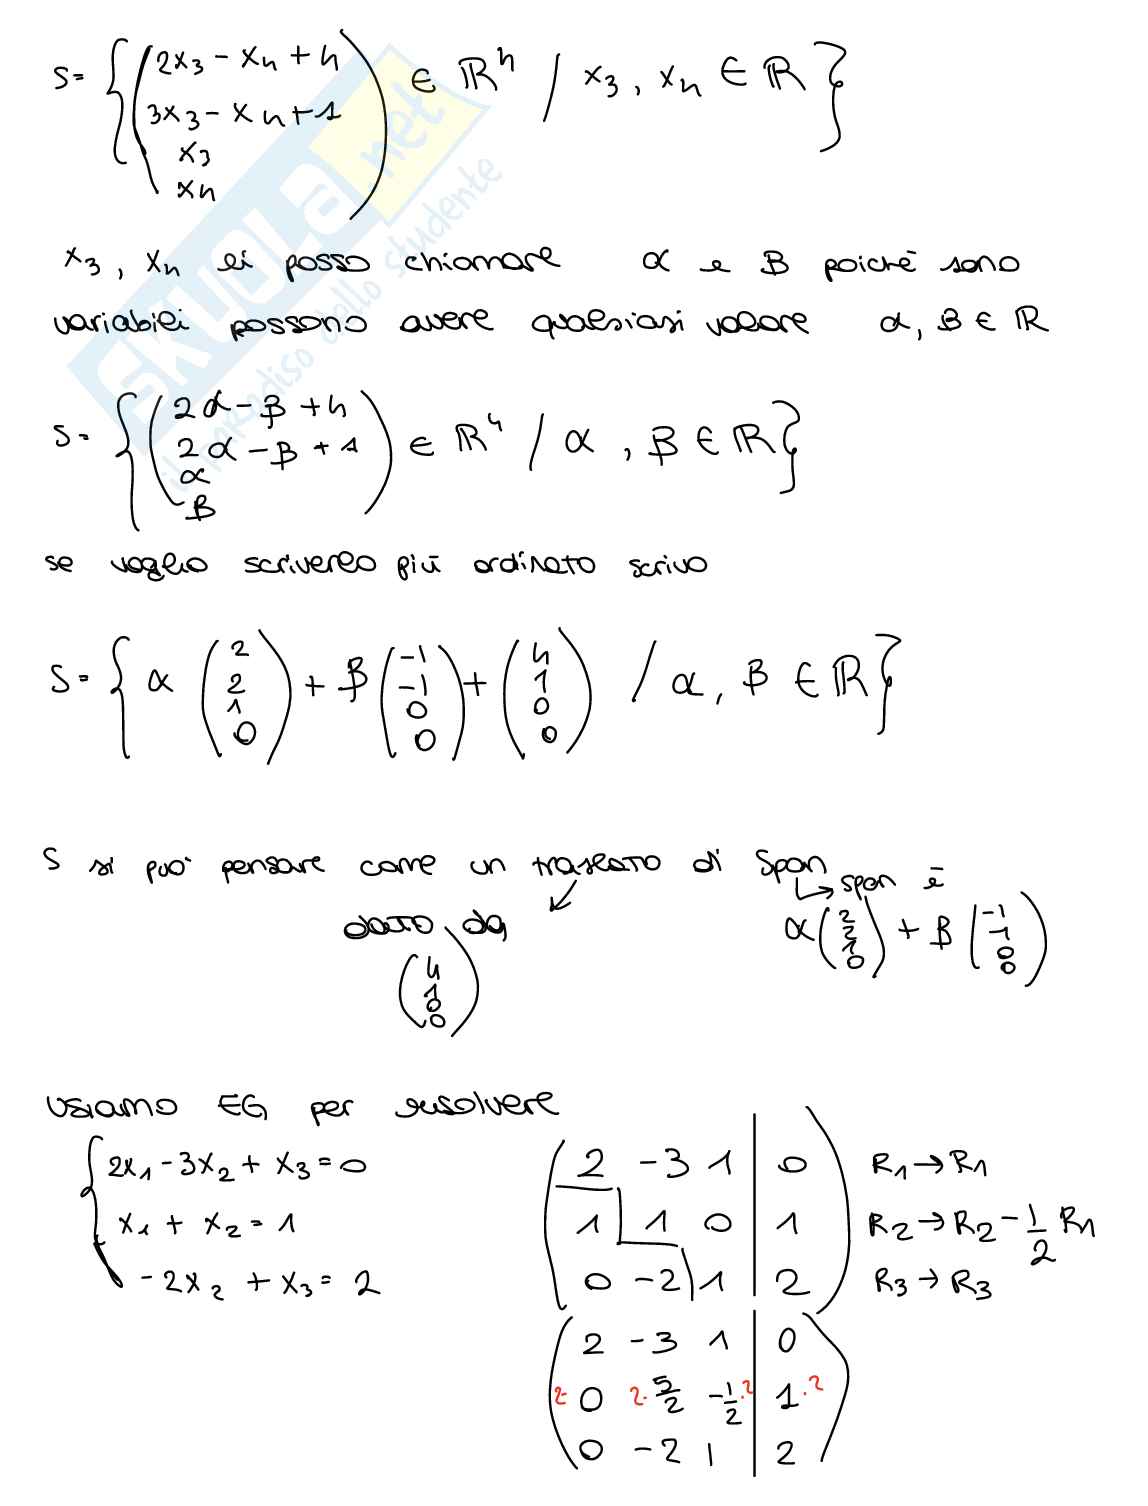 S= { ( 2x₃ - x₄ + 4
3x₃ - x₄ + 1
x₃
x₄ ) ∈ ℝ⁴ / x₃, x₄ ∈ ℝ }
x₃, x₄ li posso chiamare α e β poiché sono
variabili possono avere qualsiasi valore α, β ∈ ℝ
S= { ( 2α - β + 4
2α - β + 1
α
β ) ∈ ℝ⁴ / α, β ∈ ℝ }
se voglio scriverlo più ordinato scrivo
S= { α ( 2 2 1 0 ) + β ( -1 -1 0 0 ) + ( 4 1 0 0 ) / α, β ∈ ℝ }
S si può pensare come un traslato di Span
↳ span è
dato da
( 4 1 0 0 )
α ( 2 2 1 0 ) + β ( -1 -1 0 0 )
Usiamo EG per risolvere
{ 2x₁ - 3x₂ + x₃ = 0
x₁ + x₂ = 1
-2x₂ + x₃ = 2
( 2 -3 1 | 0 ) R₁ → R₁
( 1 1 0 | 1 ) R₂ → R₂ - 1/2 R₁
( 0 -2 1 | 2 ) R₃ → R₃
( 2 -3 1 | 0 )
( 2· 0 2· 5/2 -1/2 ·2 | 1 ·2 )
( 0 -2 1 | 2 )
SKUOLA.net
il paradiso dello studente